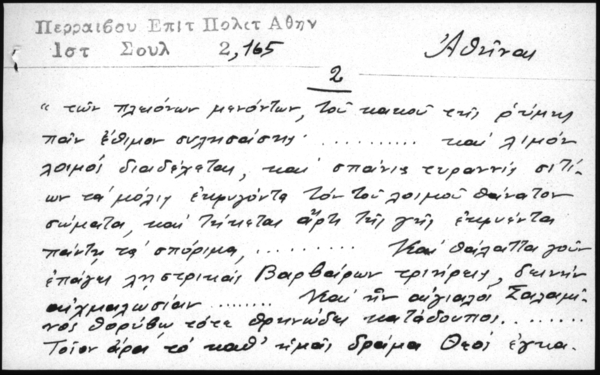 Περραιβου Επιτ Πολιτ Αθην
Ιστ Σουλ 2,165 Ἀθῆναι
2
" τῶν πλειόνων μενόντων, τοῦ κακοῦ τῆς ῥύμης
πᾶν ἔθιμον συλησάσης .......... καὶ λιμόν
λοιμός διαδέχεται, καὶ σπάνις τυραννίς σιτί-
ων τά μόλις ἐκφυγόντα τόν τοῦ λοιμοῦ θάνατον
σώματα, καὶ τήκεται ἄρτι τῆς γῆς ἐκφυέντα
πάντῃ τά σπόριμα, .......... Καὶ θάλαττα γοῦν
ἐπάγει ληστρικάς Βαρβάρων τριήρεις, δεινήν
αἰχμαλωσίαν ........ Καὶ ἦν αἰγιαλοί Σαλαμῖ-
νος θορύβῳ τότε θρηνώδει κατάδουποι. . . . . . .
Τοῖον ἆρα τό καθ' ἡμᾶς δρᾶμα Θεοί ἔγκα-